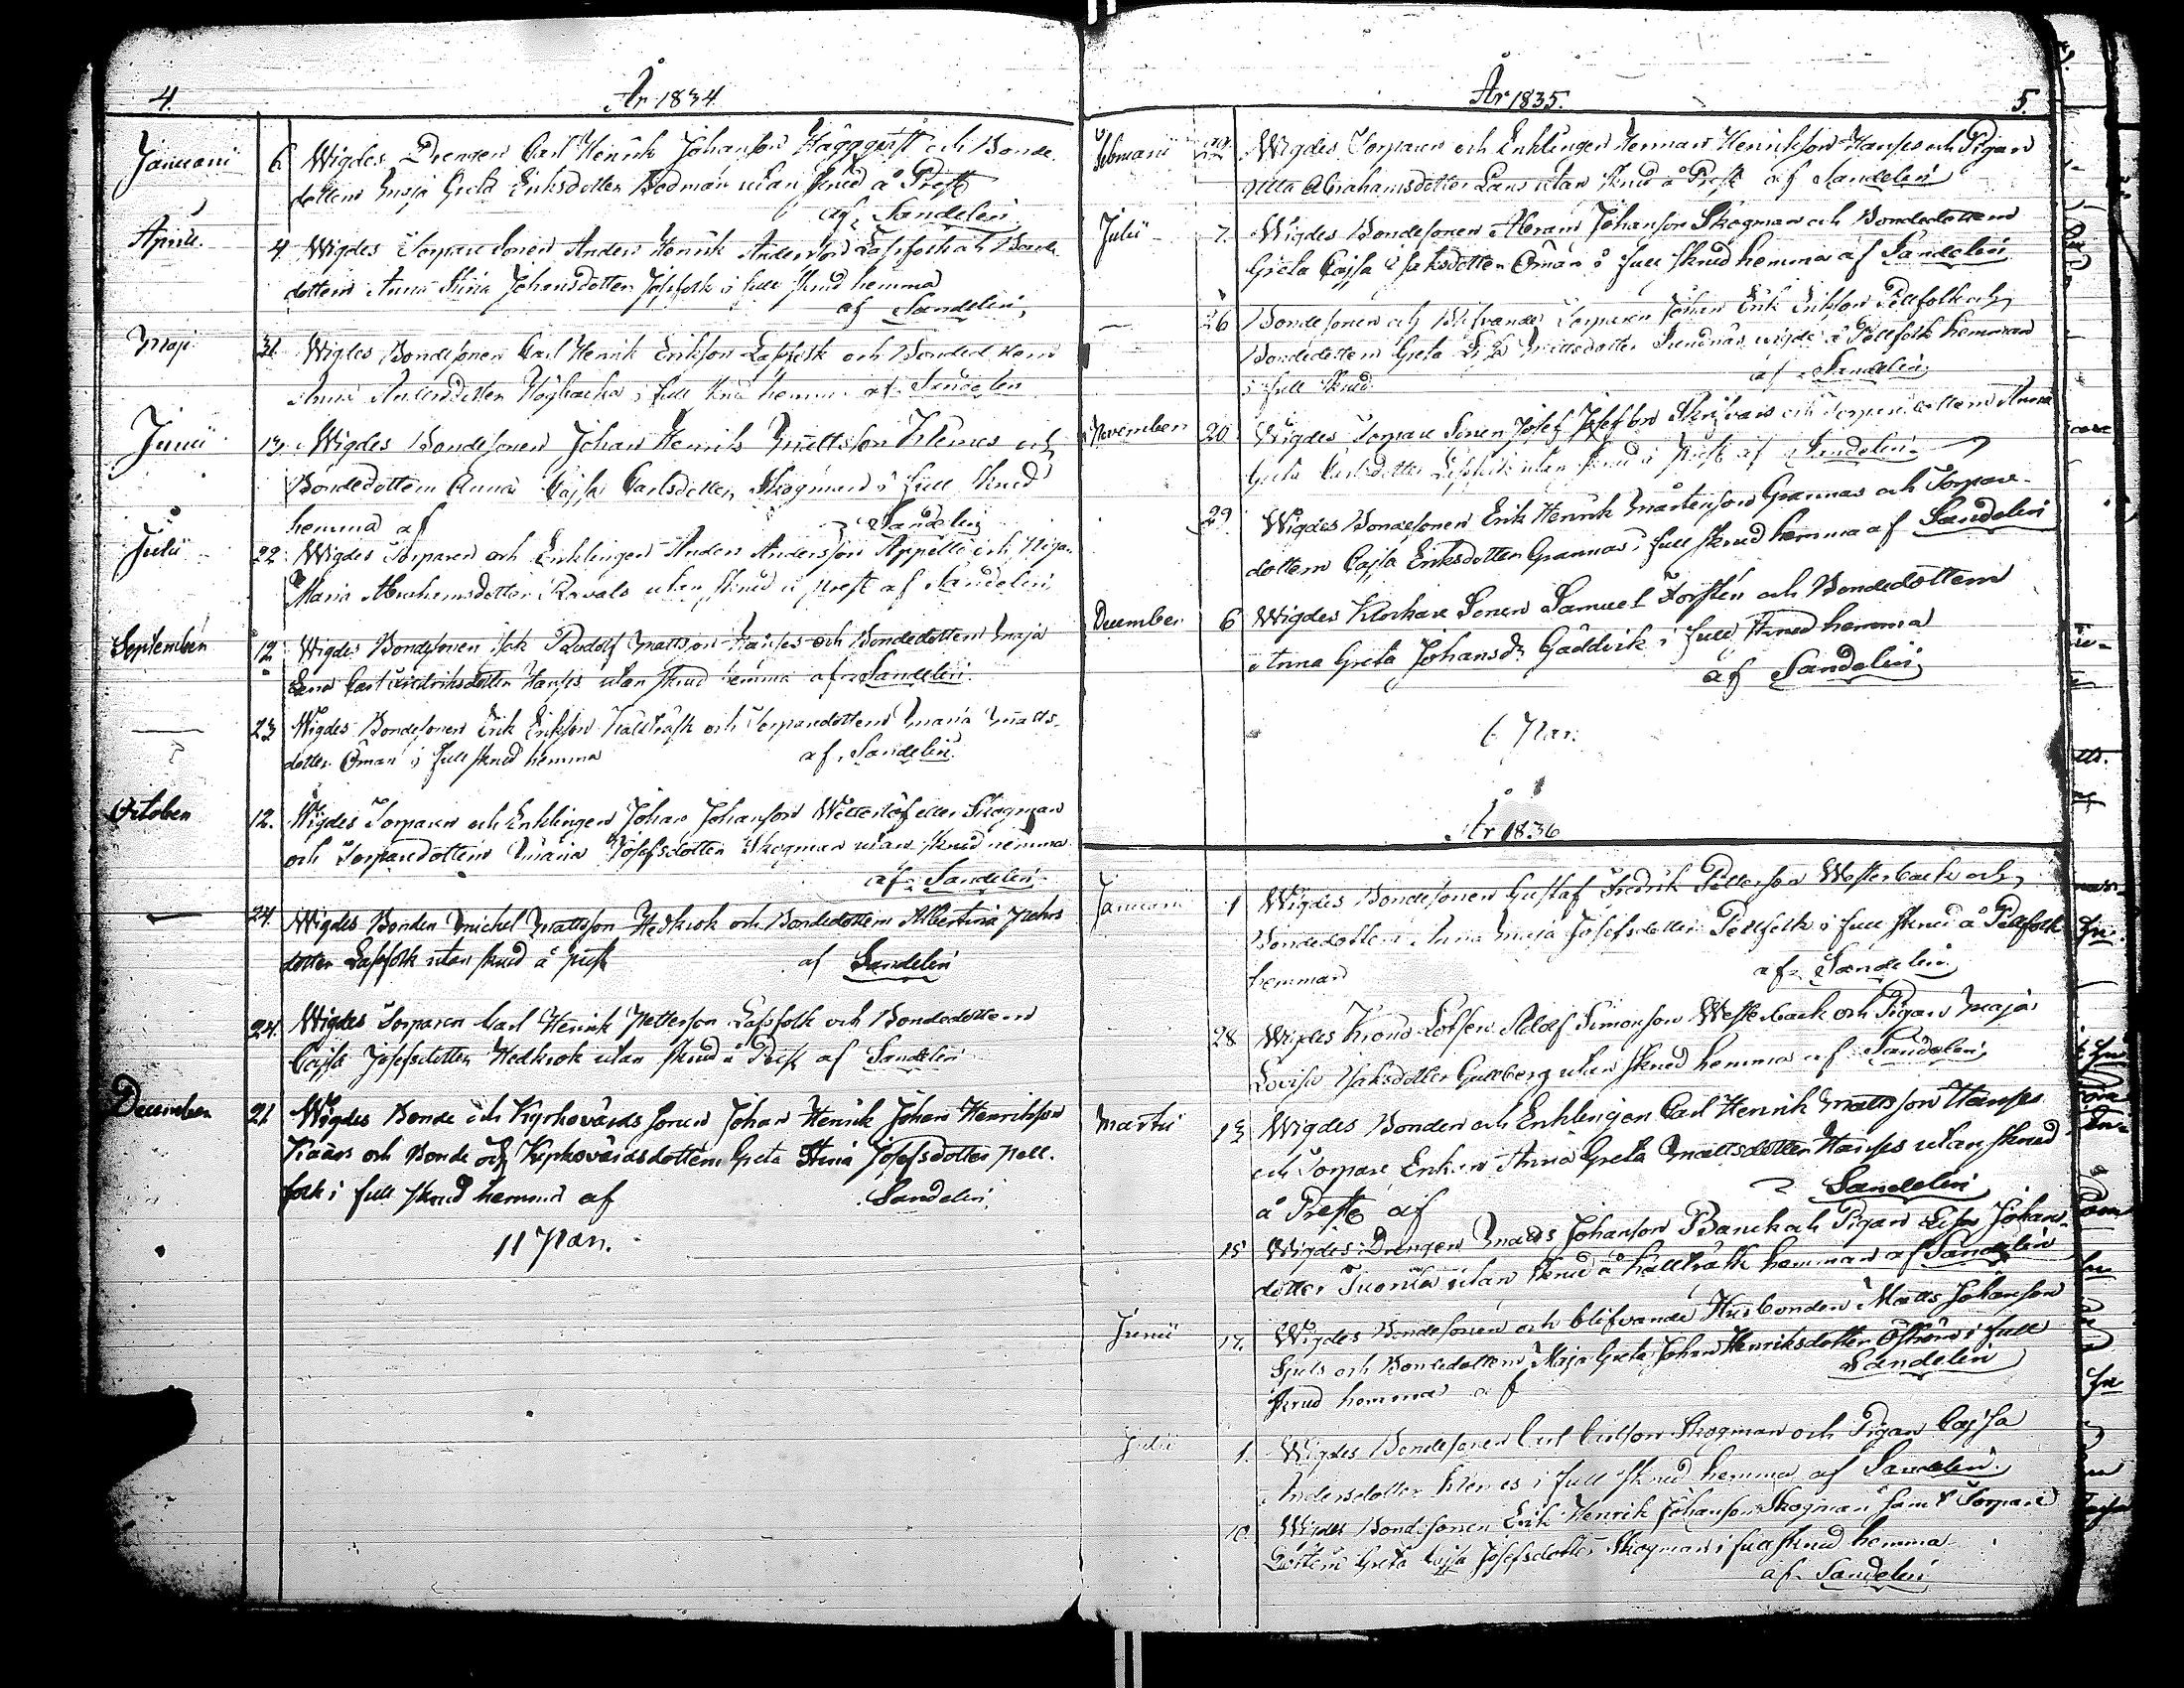 4.
År 1834.
Januarii 6. Wigdes Drengen Carl Henrik Johanson Häggqvist och Bonde-
dottern Maja Greta Eriksdotter Bodman utan skrud å Prest
af Sandelin
Aprill. 4. Wigdes Torpare Sonen Anders Henrik Anderson Lassfolk och Bonde
dottern Anna Stina Johansdotter i full skrud hemma
af Sandelin
Maji 31. Wigdes Bondesonen Carl Henrik Erikson Lassfolk och Bondedottern
Anna Andersdotter Högbacka i full skrud hemma af Sandelin
Junii 13. Wigdes Bondesonen Johan Henrik Mattsson Klemes och
Bondedottern Anna Cajsa Carlsdotter Skogman i full skrud
hemma af Sandelin
Julii 22. Wigdes Torparen och Enklingen Anders Andersson Appelle och Pigan
Maria Abrahamsdotter Ravals utan skrud å prest af Sandelin
September 12 Wigdes Bondesonen Isak Rudolf Mattson Hanses och Bondedottern Maja
Lena Carl Fredriksdotter Hanses utan skrud hemma af Sandelin.
23 Wigdes Bondesonen Erik Erikson Källträsk och Torparedottern Maria Matts-
dotter Öman i full skrud hemma af Sandelin.
October 12. Wigdes Torparen och Enklingen Johan Johanson Wetterlöf eller Skogman
och Torparedottern Maria Josefsdotter Skogman utan skrud hemma
af Sandelin
24. Wigdes Bonden Michel Mattsson Hedkrok och Bondedottern Albertina Pehrs
dotter Lassfolk utan skrud å prest af Sandelin
24. Wigdes Torparen Carl Henrik Petterson Lassfolk och Bondedottern
Cajsa Josefsdotter Hedkrok utan skrud å Prest af Sandelin
December 21. Wigdes Bonde och Kyrkovärds sonen Johan Henrik Johan Henrikson
Kaars och Bonde och Kyrkovärdsdottern Greta Stina Josefsdotter Pell-
folk i full skrud hemma af Sandelin
11 Par.
År 1835.
5.
Februarii 22 Wigdes Torparen och Enklingen Herman Henrikson Hanses och Pigan
Ulla Abrahamsdotter Lans utan skrud å Prest af Sandelin
Julii 7. Wigdes Bondesonen Abram Johanson Skogman och Bondedottern
Greta Cajsa Isaksdotter Öman i full skrud hemma af Sandelin
26 Bondesonen och Blifvande Torparen Johan Erik Erikson Pellfolk och
Bondedottern Greta Lisa Mattsdotter Sundnäs wigde å Pellfolk hemman
i full skrud af Sandelin
November 20 Wigdes Torpare Sonen Josef Josefson Skrifvars och Torparedottern Anna
Greta Carlsdotter utan skrud å prest af Sandelin
29 Wigdes Bondesonen Erik Henrik Mårtenson Grannas och Torpare-
dottern Cajsa Eriksdotter Grannas i full skrud hemma af Sandelin
December 6 Wigdes Klockare Sonen Samuel Forstén och Bondedottern
Anna Greta Johansdr Gäddvik i full skrud hemma
af Sandelin
6 Par.
År 1836
Januarii 1 Wigdes Bondesonen Gustaf Fredrik Petterson Westerback och
Bondedottern Anna Maja Josefsdotter Pellfolk i full skrud å Pellfolk
hemman af Sandelin
28 Wigdes Krono Lotsen Adolf Simonson Westerback och Pigan Maja
Lovisa Isaksdotter Gullberg utan skrud hemma af Sandelin
Martii 13 Wigdes Bonden och Enklingen Carl Henrik Mattsson Hanses
och Torpare Enkan Anna Greta Mattsdotter Hanses utan skrud
å Prest af Sandelin
15 Wigdes Drengen Matts Johanson Banck och Pigan Lisa Johans-
dotter Tuorila utan skrud å Källträsk hemman af Sandelin
Junii 17. Wigdes Bondesonen och blifvande Husbonden Matts Johanson
Gjuls och Bondedottern Maja Greta Johan Henriksdotter Öström i full
skrud hemma af Sandelin
Julii 1. Wigdes Bondesonen Carl Carlson Skogman och Pigan Cajsa
Andersdotter Klemes i full skrud hemma af Sandelin.
10. Wigdes Bondesonen Erik Henrik Johanson Skogman samt Torpare
Dottern Greta Cajsa Josefsdotter Skogman i full skrud hemma
af Sandelin